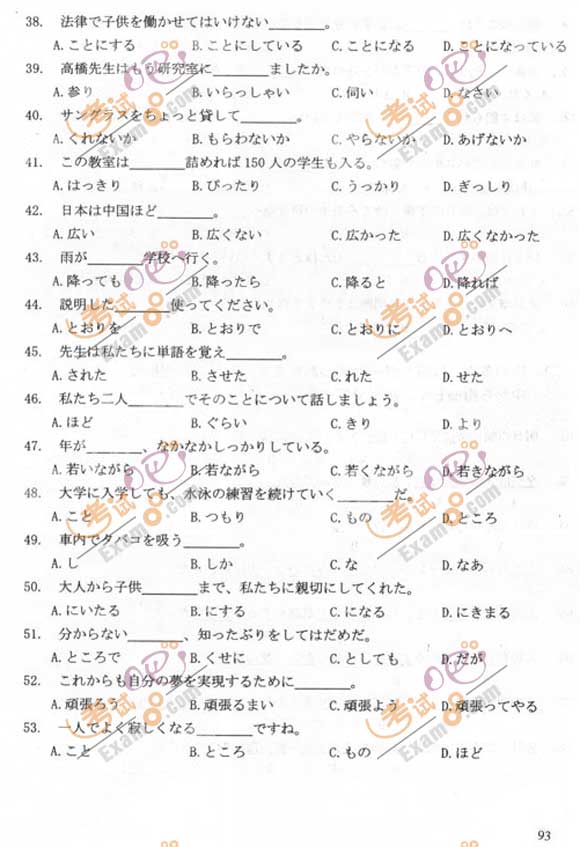 38. 法律で子供を働かせてはいけない________。
A.ことにする B.ことにしている C.ことになる D.ことになっている
39. 高橋先生はもう研究室に________ましたか。
A.参り B.いらっしゃい C.伺い D.なさい
40. サングラスをちょっと貸して________。
A.くれないか B.もらわないか C.やらないか D.あげないか
41. この教室は________詰めれば150人の学生も入る。
A.はっきり B.ぴったり C.うっかり D.ぎっしり
42. 日本は中国ほど________。
A.広い B.広くない C.広かった D.広くなかった
43. 雨が________学校へ行く。
A.降っても B.降ったら C.降ると D.降れば
44. 説明した________使ってください。
A.とおりを B.とおりで C.とおりに D.とおりへ
45. 先生は私たちに単語を覚え________。
A.された B.させた C.られた D.せた
46. 私たち二人________でそのことについて話しましょう。
A.ほど B.ぐらい C.きり D.より
47. 年が________、なかなかしっかりしている。
A.若いながら B.若ながら C.若くながら D.若きながら
48. 大学に入学しても、水泳の練習を続けていく________だ。
A.こと B.つもり C.もの D.ところ
49. 車内でタバコを吸う________。
A.し B.しか C.な D.なあ
50. 大人から子供________まで、私たちに親切にしてくれた。
A.にいたる B.にする C.になる D.にきまる
51. 分からない________、知ったぶりをしてはだめだ。
A.ところで B.くせに C.としても D.だが
52. これからも自分の夢を実現するために________。
A.頑張ろう B.頑張るまい C.頑張よう D.頑張ってやる
53. 一人でよく寂しくなる________ですね。
A.こと B.ところ C.もの D.ほど
93